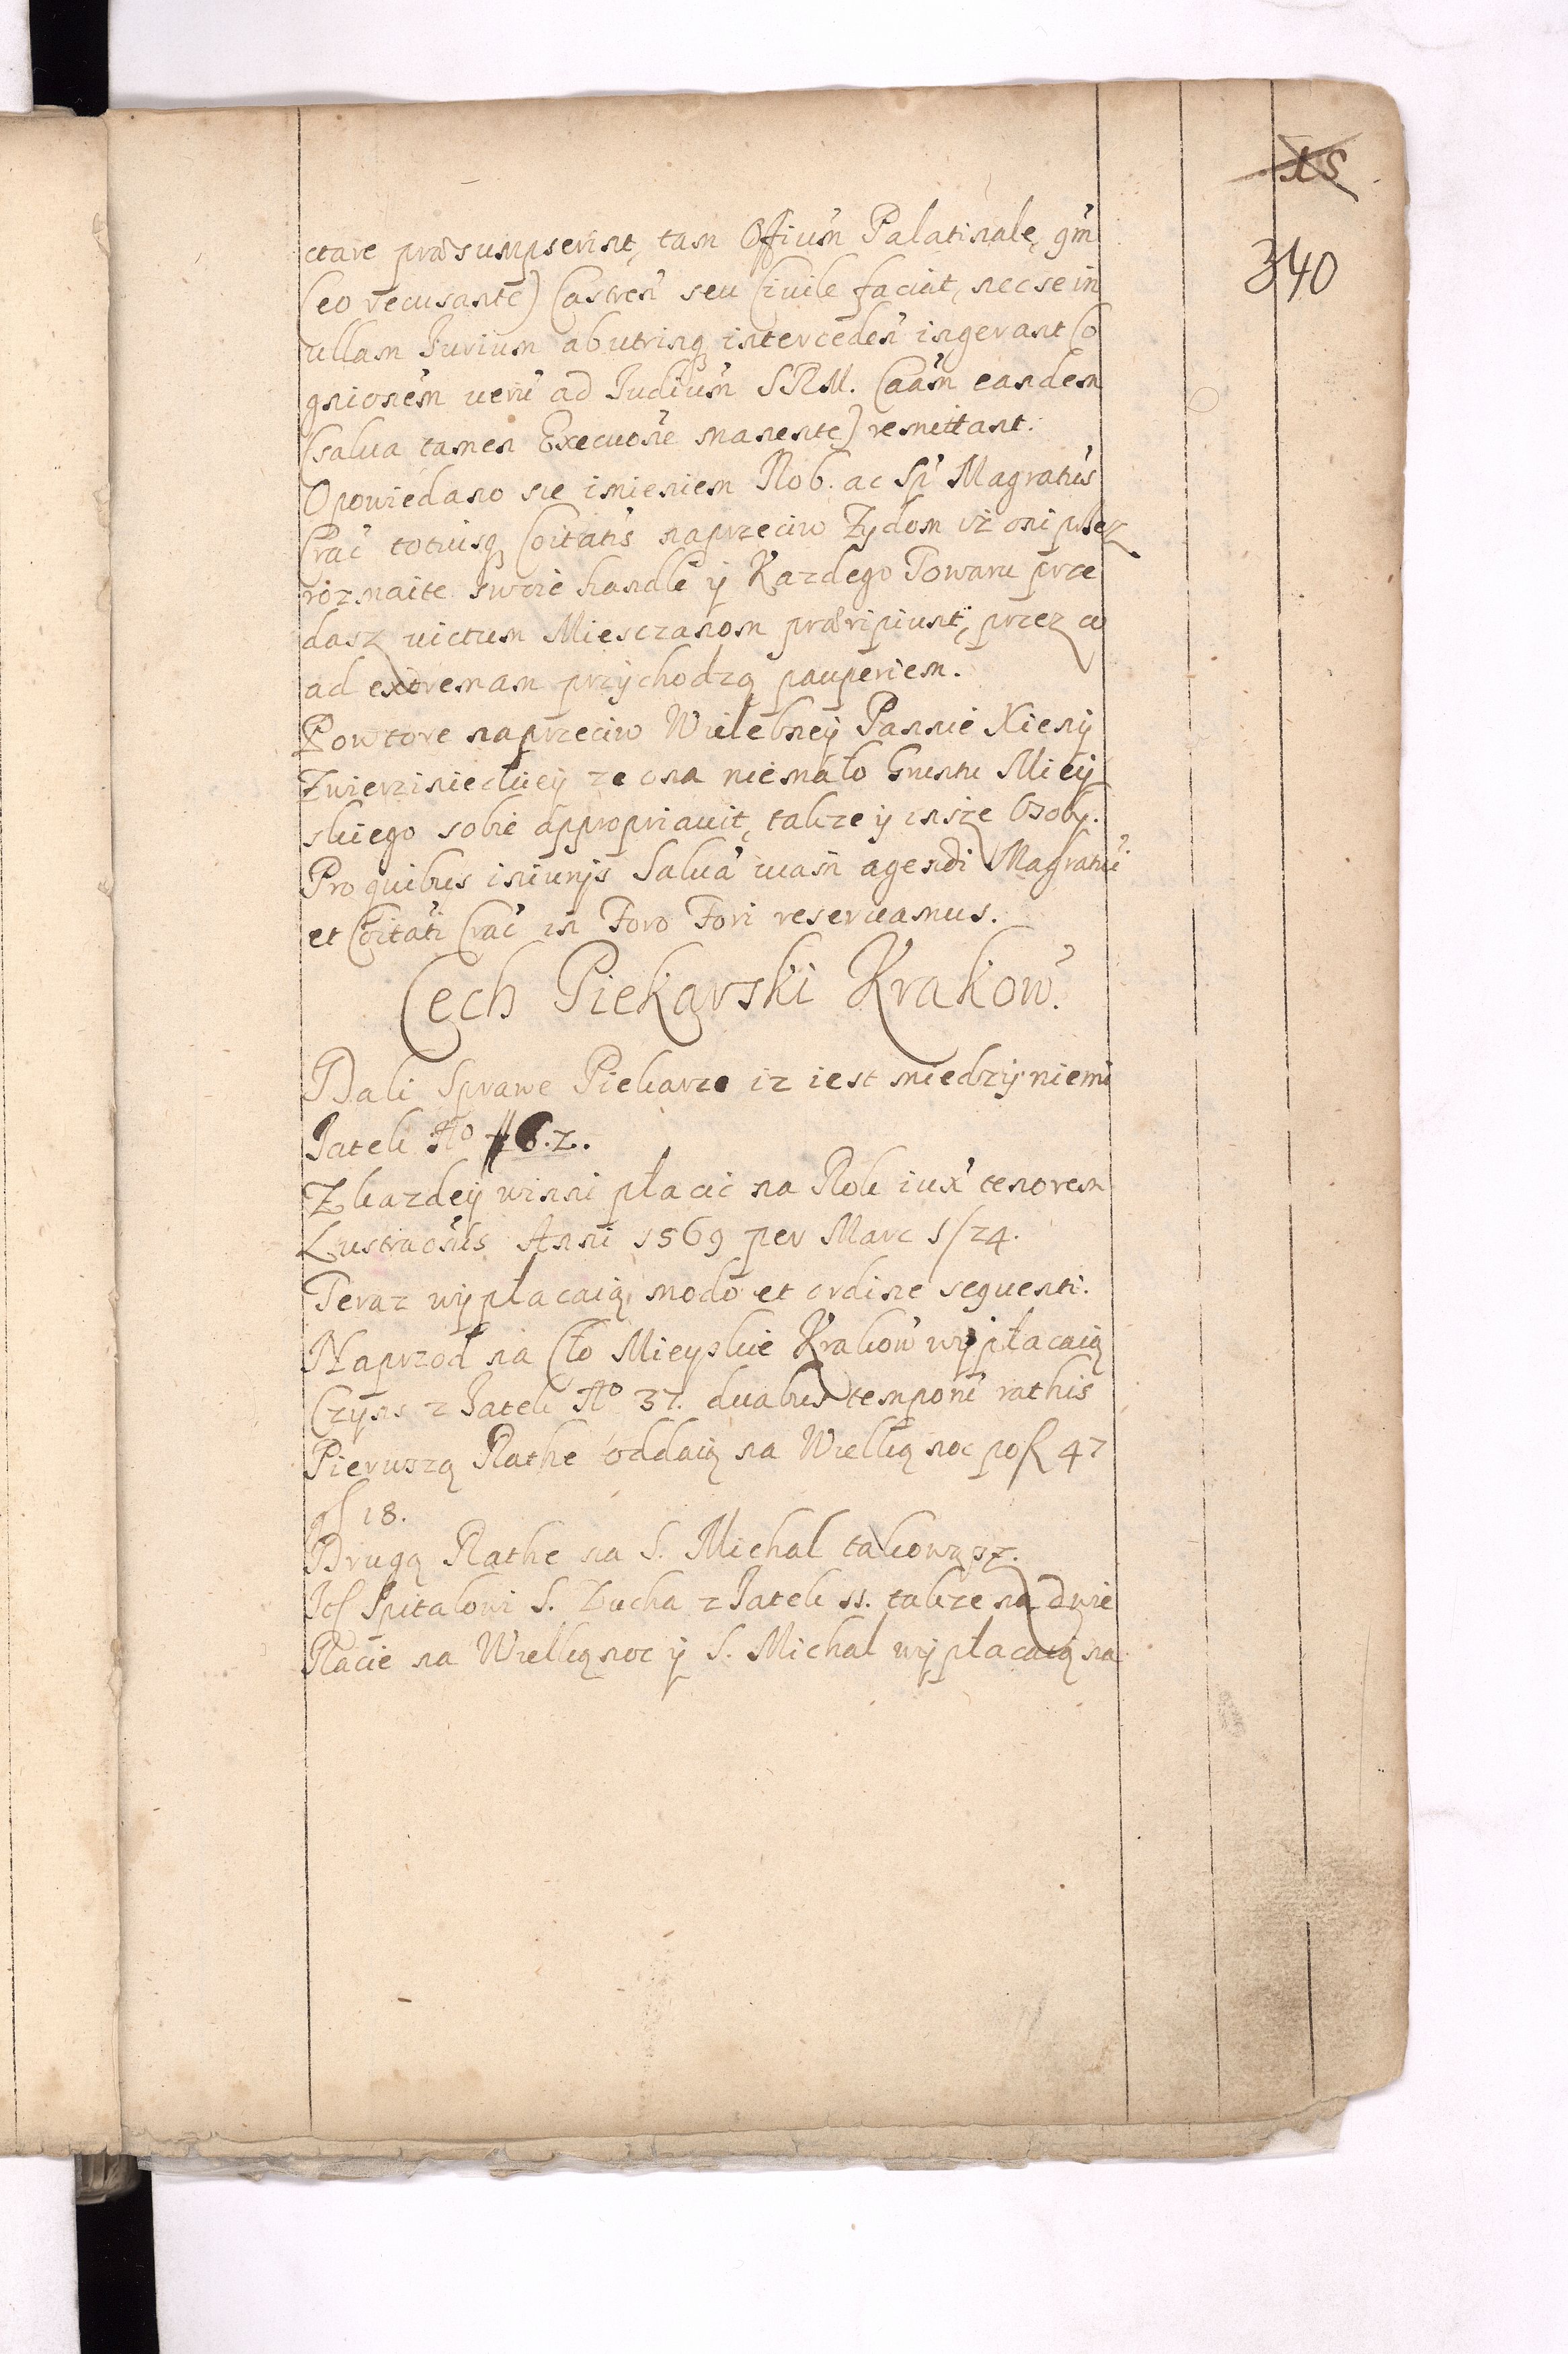 15
340
ctare præsumpserint, tam Offium Palatinale, qm
(eo recusante) Castren seu Civile faciat, nec se in
ullam Jurium ab utrinq interceden ingerant Co
gnionem veru ad Judium SRM. Caam eandem
(salva tamen Executone manente) remittant.
Opowiedano sie imieniem Nob. ac Sp Magratus
Crac totiusq Coitatis naprzeciw Zydom iż oni przez
rozmaite swoie handle y Kazdego Towaru prze
dasz victum Miesczanom præripiunt, przez co
ad extremam przychodzą pauperiem.
Powtore naprzeciw Wielebney Pannie Xieny
Zwierzinieckiey ze ona niemało Gruntu Miey
skiego sobie appropriavit, takze y insze Osoby.
Pro quibus iniurijs Salva viam agendi Magratui
et Coitati Crac in Foro Fori reservamus.
Cech Piekarski Krakow.
Dali Sprawe Piekarze iz iest miedzy niemi
Jatek No 46.2.
Z kazdey winni płacic na Rok iux tenorem
Lustraonis Anni 1569 per Marc 1/24.
Teraz wypłacaią modo et ordine sequenti.
Naprzod na Cło Mieyskie Krakow wypłacaią
Czyns z Jatek No 37. duabus temporu rathis
Pierwszą Rathe oddaią na Wielkąnoc po fl 47
gſ 18.
Drugą Rathe na S. Michał takowąsz.
Itſ Szpitalowi S. Ducha z Jatek 11. takze na dwie
Racie na Wielkąnoc y S. Michał wypłacaią na